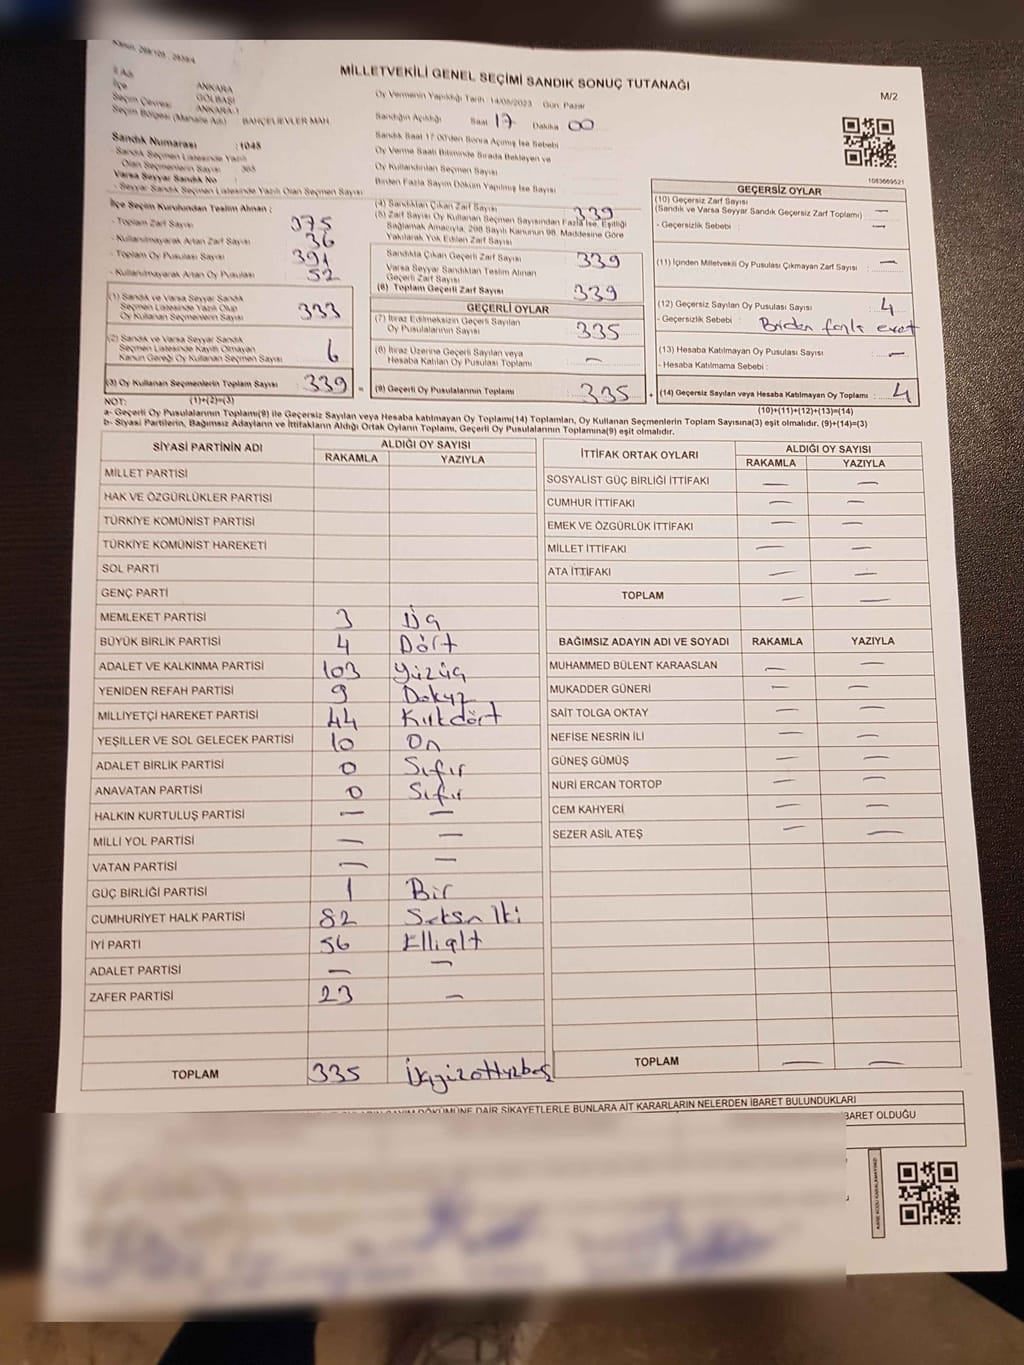 MİLLETVEKİLİ GENEL SEÇİMİ SANDIK SONUÇ TUTANAĞI
M/2
İl Adı ANKARA
İlçe GÖLBAŞI
Seçim Çevresi ANKARA-1
Seçim Bölgesi (Mahalle Adı) : BAHÇELİEVLER MAH.
Sandık Numarası :1045
- Sandık Seçmen Listesinde Yazılı
Olan Seçmenlerin Sayısı 365
Varsa Seyyar Sandık No
- Seyyar Sandık Seçmen Listesinde Yazılı Olan Seçmen Sayısı
Oy Vermenin Yapıldığı Tarih :14/05/2023 Gün: Pazar
Sandığın Açıldığı Saat 17 Dakika 00
Sandık Saat 17.00'den Sonra Açılmış İse Sebebi
Oy Verme Saati Bitiminde Sırada Bekleyen ve
Oy Kullandırılan Seçmen Sayısı
Birden Fazla Sayım Döküm Yapılmış İse Sayısı
1083669521
İlçe Seçim Kurulundan Teslim Alınan ;
- Toplam Zarf Sayısı 375
- Kullanılmayarak Artan Zarf Sayısı 36
- Toplam Oy Pusulası Sayısı 391
- Kullanılmayarak Artan Oy Pusulası 52
(1) Sandık ve Varsa Seyyar Sandık
Seçmen Listesinde Yazılı Olup
Oy Kullanan Seçmenlerin Sayısı 333
(2) Sandık ve Varsa Seyyar Sandık
Seçmen Listesinde Kayıtlı Olmayan
Kanun Gereği Oy Kullanan Seçmen Sayısı 6
(3) Oy Kullanan Seçmenlerin Toplam Sayısı : 339
(1)+(2)=(3)
(4) Sandıktan Çıkan Zarf Sayısı 339
(5) Zarf Sayısı Oy Kullanan Seçmen Sayısından Fazla İse, Eşitliği
Sağlamak Amacıyla, 298 Sayılı Kanunun 98. Maddesine Göre
Yakılarak Yok Edilen Zarf Sayısı
Sandıkta Çıkan Geçerli Zarf Sayısı 339
Varsa Seyyar Sandıktan Teslim Alınan
Geçerli Zarf Sayısı
(6) Toplam Geçerli Zarf Sayısı 339
GEÇERLİ OYLAR
(7) İtiraz Edilmeksizin Geçerli Sayılan
Oy Pusulalarının Sayısı 335
(8) İtiraz Üzerine Geçerli Sayılan veya
Hesaba Katılan Oy Pusulası Toplamı : —
= (9) Geçerli Oy Pusulalarının Toplamı : 335
GEÇERSİZ OYLAR
(10) Geçersiz Zarf Sayısı
(Sandık ve Varsa Seyyar Sandık Geçersiz Zarf Toplamı) : —
- Geçersizlik Sebebi : —
(11) İçinden Milletvekili Oy Pusulası Çıkmayan Zarf Sayısı : —
(12) Geçersiz Sayılan Oy Pusulası Sayısı : 4
- Geçersizlik Sebebi : Birden fazla evet
(13) Hesaba Katılmayan Oy Pusulası Sayısı : —
- Hesaba Katılmama Sebebi :
+ (14) Geçersiz Sayılan veya Hesaba Katılmayan Oy Toplamı : 4
(10)+(11)+(12)+(13)=(14)
NOT:
a- Geçerli Oy Pusulalarının Toplamı(9) ile Geçersiz Sayılan veya Hesaba katılmayan Oy Toplamı(14) Toplamları, Oy Kullanan Seçmenlerin Toplam Sayısına(3) eşit olmalıdır. (9)+(14)=(3)
b- Siyasi Partilerin, Bağımsız Adayların ve İttifakların Aldığı Ortak Oyların Toplamı, Geçerli Oy Pusulalarının Toplamına(9) eşit olmalıdır.
SİYASİ PARTİNİN ADI ALDIĞI OY SAYISI
RAKAMLA YAZIYLA
MİLLET PARTİSİ
HAK VE ÖZGÜRLÜKLER PARTİSİ
TÜRKİYE KOMÜNİST PARTİSİ
TÜRKİYE KOMÜNİST HAREKETİ
SOL PARTİ
GENÇ PARTİ
MEMLEKET PARTİSİ 3 Üç
BÜYÜK BİRLİK PARTİSİ 4 Dört
ADALET VE KALKINMA PARTİSİ 103 Yüzüç
YENİDEN REFAH PARTİSİ 9 Dokuz
MİLLİYETÇİ HAREKET PARTİSİ 44 Kırkdört
YEŞİLLER VE SOL GELECEK PARTİSİ 10 On
ADALET BİRLİK PARTİSİ 0 Sıfır
ANAVATAN PARTİSİ 0 Sıfır
HALKIN KURTULUŞ PARTİSİ — —
MİLLİ YOL PARTİSİ — —
VATAN PARTİSİ — —
GÜÇ BİRLİĞİ PARTİSİ 1 Bir
CUMHURİYET HALK PARTİSİ 82 Seksn İki
İYİ PARTİ 56 Ellialt
ADALET PARTİSİ — —
ZAFER PARTİSİ 23 —
TOPLAM 335
İTTİFAK ORTAK OYLARI ALDIĞI OY SAYISI
RAKAMLA YAZIYLA
SOSYALİST GÜÇ BİRLİĞİ İTTİFAKI — —
CUMHUR İTTİFAKI — —
EMEK VE ÖZGÜRLÜK İTTİFAKI — —
MİLLET İTTİFAKI — —
ATA İTTİFAKI — —
TOPLAM — —
BAĞIMSIZ ADAYIN ADI VE SOYADI RAKAMLA YAZIYLA
MUHAMMED BÜLENT KARAASLAN — —
MUKADDER GÜNERİ — —
SAİT TOLGA OKTAY — —
NEFİSE NESRİN İLİ — —
GÜNEŞ GÜMÜŞ — —
NURİ ERCAN TORTOP — —
CEM KAHYERİ — —
SEZER ASİL ATEŞ — —
TOPLAM — —
DÖKÜMÜNE DAİR ŞİKAYETLERLE BUNLARA AİT KARARLARIN NELERDEN İBARET BULUNDUKLARI
İBARET OLDUĞU